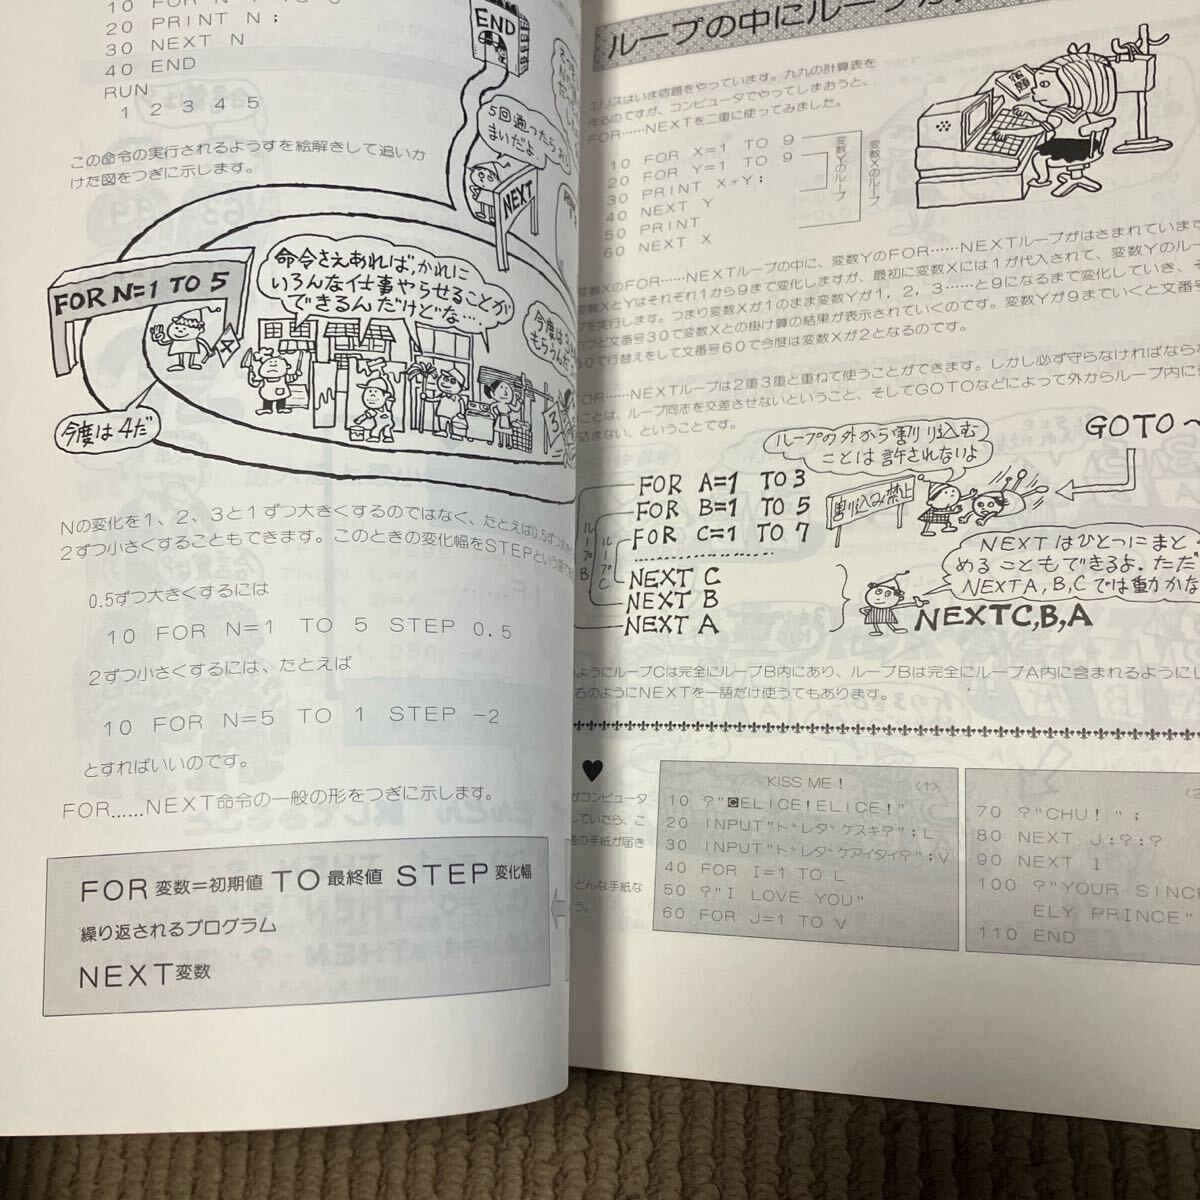 20 PRINT N ;
30 NEXT N
40 END
RUN
1 2 3 4 5
この命令の実行されるようすを絵解きして追いか
けた図をつぎに示します。
END
5回通ったら
まいだよ!
NEXT
FOR N=1 TO 5
命令さえあれば,かれに
いろんな仕事やらせることが
できるんだけどな…
今度は4だ
今度は
Nの変化を1、2、3と1ずつ大きくするのではなく、たとえば0.5ずつ
2ずつ小さくすることもできます。このときの変化幅をSTEPという
0.5ずつ大きくするには
10 FOR N=1 TO 5 STEP 0.5
2ずつ小さくするには、たとえば
10 FOR N=5 TO 1 STEP -2
とすればいいのです。
FOR……NEXT命令の一般の形をつぎに示します。
FOR 変数=初期値 TO 最終値 STEP 変化幅
繰り返されるプログラム
NEXT変数
ループの中にループが
エリスはいま宿題をやっています。九九の計算表を
作るのですが、コンピュータでやってしまおうと、
FOR……NEXTを二重に使ってみました。
宿題
10 FOR X=1 TO 9
20 FOR Y=1 TO 9
30 PRINT X*Y;
40 NEXT Y
50 PRINT
60 NEXT X
変数Yのループ
変数Xのループ
変数XのFOR……NEXTループの中に、変数YのFOR……NEXTループがはさまれています
変数XとYはそれぞれ1から9まで変化しますが、最初に変数Xには1が代入されて、変数Yのルー
プを実行します。つまり変数Xが1のまま変数Yが1,2,3……と9になるまで変化していき、そ
のつど文番号30で変数Xとの掛け算の結果が表示されていくのです。変数Yが9までいくと文番号
50で行替えをして文番号60で今度は変数Xが2となるのです。
FOR……NEXTループは2重3重と重ねて使うことができます。しかし必ず守らなければならな
ことは、ループ同志を交差させないということ、そしてGOTOなどによって外からループ内に
込まない、ということです。
ループの外から割り込む
ことは許されないよ
GOTO〜
割り込み禁止
FOR A=1 TO 3
FOR B=1 TO 5
FOR C=1 TO 7
NEXT C
NEXT B
NEXT A
ループB
ループC
NEXTはひとつにまと
めることもできるよ.ただ
NEXTA,B,Cでは動かな
NEXTC,B,A
のようにループCは完全にループB内にあり、ループBは完全にループA内に含まれるようにし
右のようにNEXTを一語だけ使うてもあります。
♥
がコンピュータ
していたら、こ
の手紙が届き
どんな手紙な
う。
KISS ME! 〈1〉
10 ?"CELICE!ELICE!"
20 INPUT"ドレダケスキ?";L
30 INPUT"ドレダケアイタイ?";V
40 FOR I=1 TO L
50 ?"I LOVE YOU"
60 FOR J=1 TO V
70 ?"CHU! ";
80 NEXT J:?:?
90 NEXT I
100 ?"YOUR SINC
ELY PRINCE"
110 END